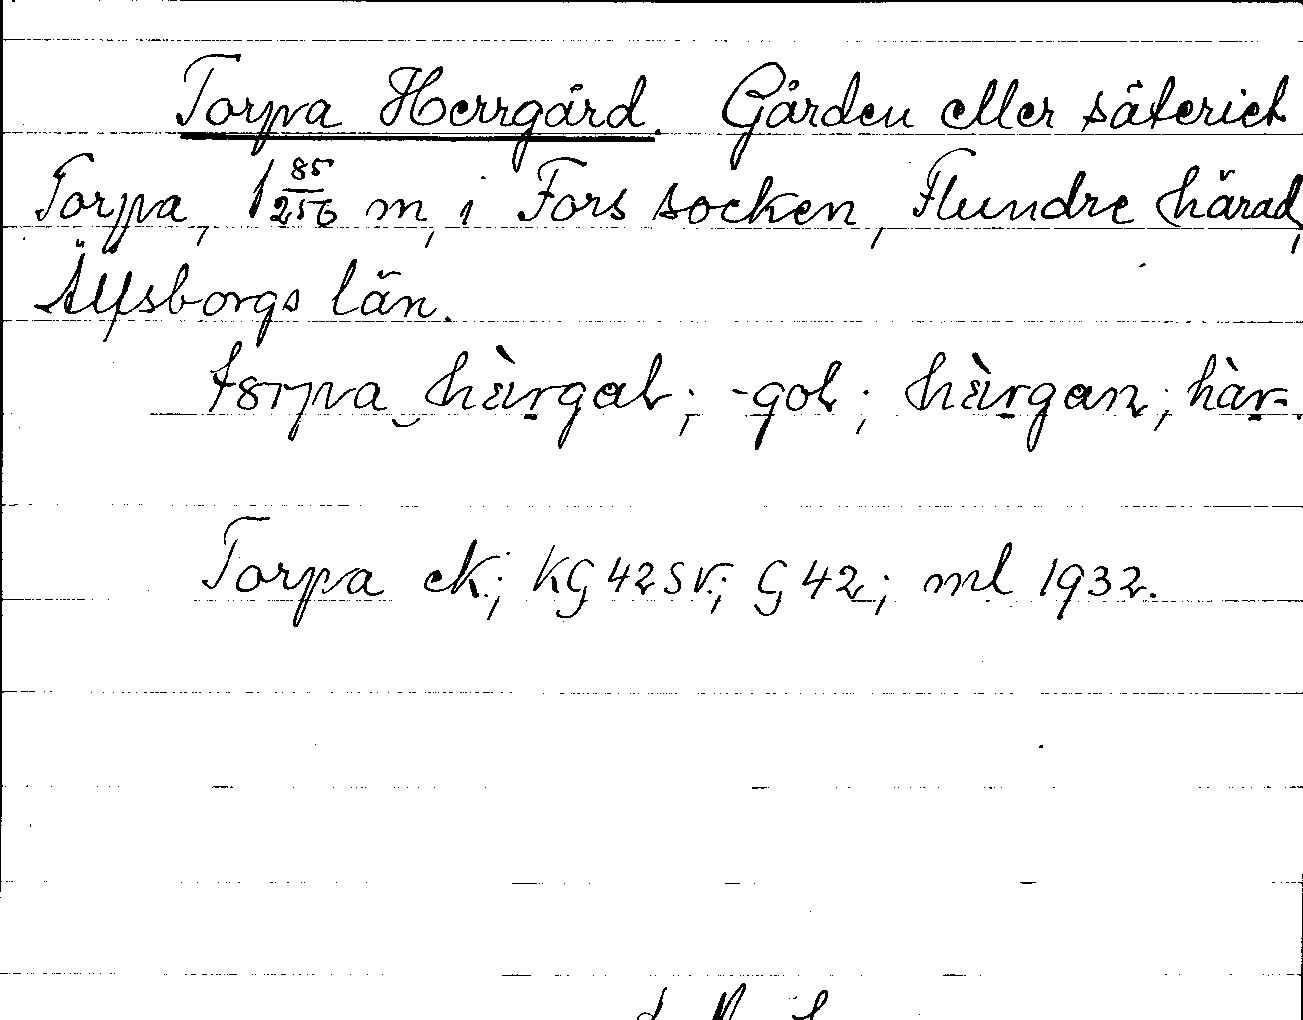 Torpa Herrgård. Gården eller säteriet
Torpa, 1 85/256 m, i Fors socken, Flundre härad,
Älfsborgs län.
tɔrpa hὰrgaɫ; -goɫ; hὰrgan; hàr-
Torpa ek.; KG 42 SV.; G 42; ml 1932.